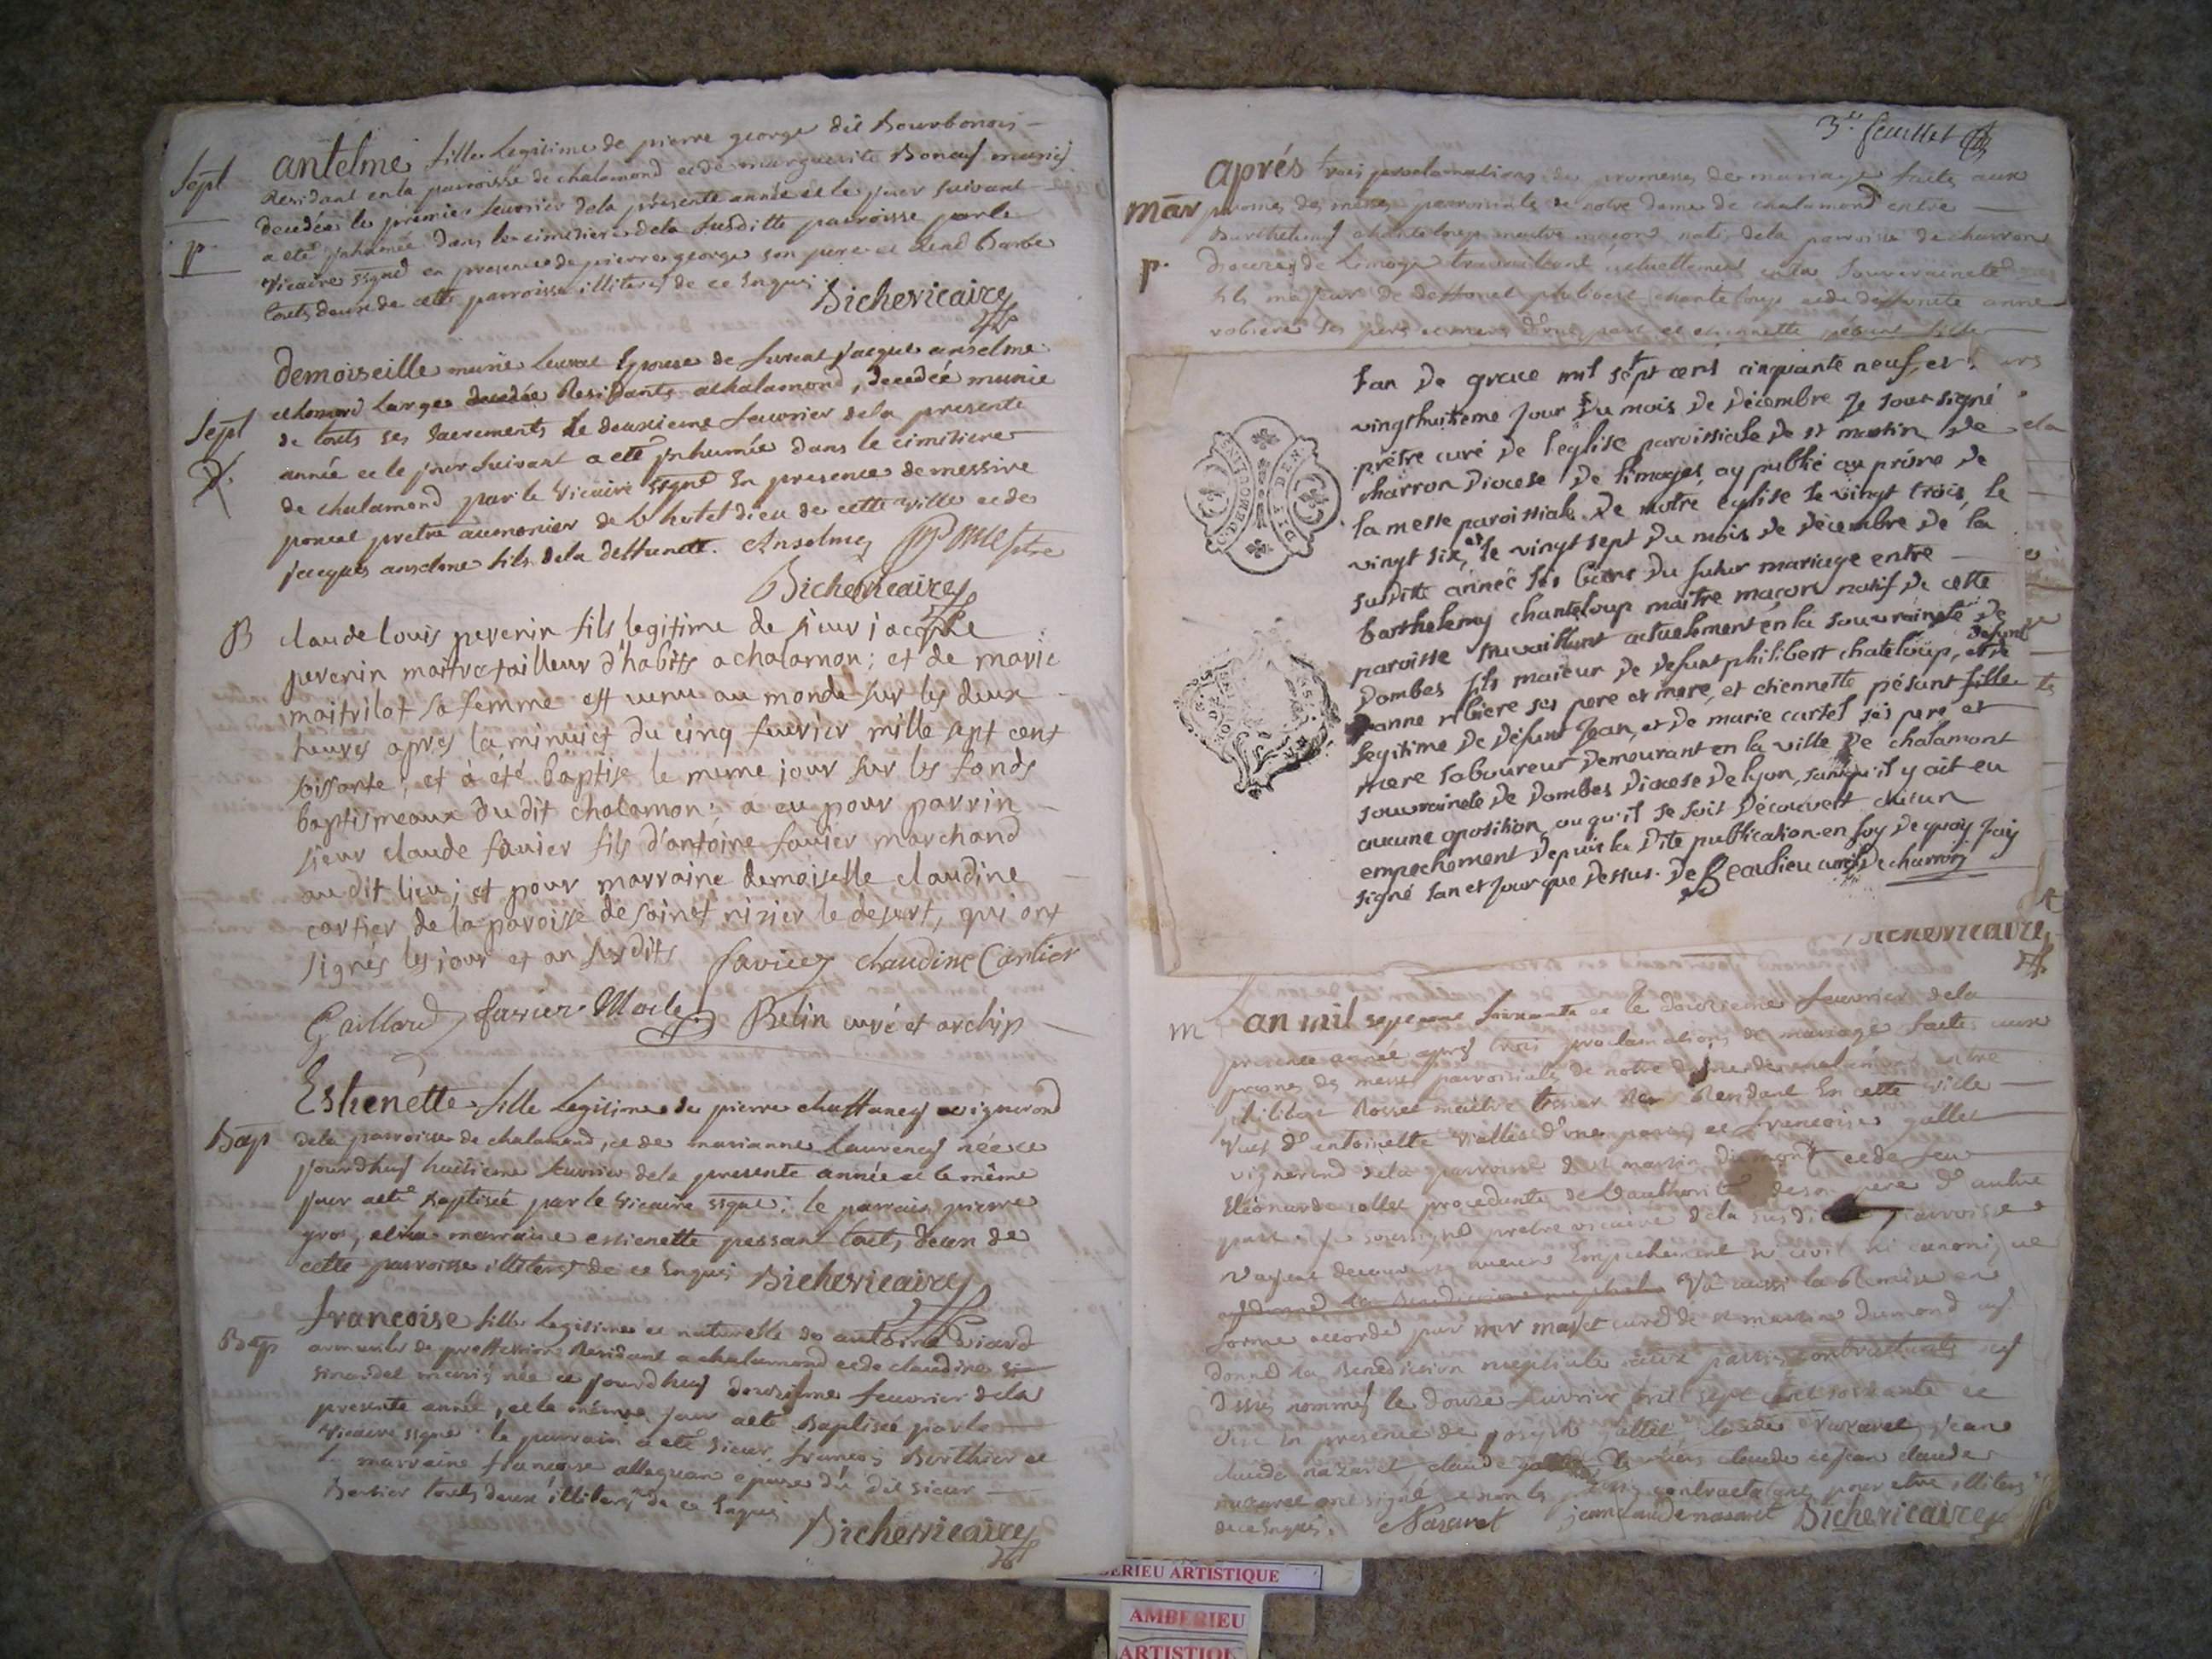 Sept
antelme fille legitime de pierre george dit Bourbonois
Residant en la parroisse de chalamond et de marguerite Boneuf mariés
P.
decedée le premier feuvrier dela présente année et le jour suivant
a eté jnhumée dans le cimitiere dela susditte parroisse par le
vicaire signé en presence de pierre george son pere et
touts deux de cette parroisse illiterés de ce Enquis
Bichevicaire
demoiseille marie Epouse de jacque anselme
decedée Residants a chalamond, decedée munie
Sept
de touts ses sacrements le deuxieme feuvrier dela presente
année et le jour suivant a eté jnhumée dans le cimitiere
de chalamond par le vicaire signé En presence de messire
poncet pretre aumonier de l'hotel dieu de cette ville et de
jacques anselme fils dela deffunte. Anselme
Bichevicaire
B
claude louis perenin fils legitime de sieur jacque
perenin maitre tailleur d'habits a chalamon; et de marie
maitrilot sa femme est venu au monde sur les deux
heures apres la minuict du cinq fuevrier mille sept cent
soissante; et a été baptise le meme jour sur les fonds
baptismeaux du dit chalamon; a eu pour parrin
sieur claude favier fils d'antoine favier marchand
au dit lieu; et pour marraine demoiselle claudine
cartier de la paroisse de sainct nizier le desert, qui ont
signés les jour et an susdits favier claudine Cartier
Gaillard favier Belin curé et archip
Bap
Estienette fille legitime de pierre chaffaney vigneron
dela parroisse de chalamond, et de marianne laurency née ce
jourdhuy huitieme feuvrier dela presente année et le même
jour a eté Baptisée par le vicaire signé: le parrain pierre
gros, et la marraine estienette pessant touts deux de
cette parroisse illiterés de ce Enquis Bichevicaire
Bap
francoise fille legitime et naturelle de antoine Viard
armurier de proffession Residant a chalamond et de claudine
mariés née ce jourdhuy douzieme feuvrier dela
presente année, et le même jour a eté Baptisée par le
vicaire signé: le parrain a eté Sieur francois Berthier et
la marraine francoise epouse du dit sieur
Bertier touts deux illiterés de ce Enquis
Bichevicaire
3e feuillet
mar
aprés trois proclamations de promesses de mariage faites aux
prones des messes parroissiales de notre dame de chalamond entre
Barthelemy chanteloup maitre maçond natif dela parroisse de charron
P.
Diocese de Limoge travaillant actuellement en la Souveraineté
fils majeur de deffunct philibert chanteloup et de deffuncte anne
robiere ses pere et mere d'une part et etiennette pésant fille
l'an de grace mil sept cent cinquante neuf, et
vingthuitieme jour du mois de décembre je sous signé
prêtre curé de l'eglise paroissiale de st martin de
charron diocese de limoges, ay publié au prône de
la messe paroissiale de nôtre eglise le vingt trois, le
vingt six, et le vingt sept du mois de décembre de la
susditte année les bans du futur mariage entre
barthelemy chanteloup maitre maçon natif de cette
paroisse travaillant actuelement en la souveraineté de
dombes fils maieur de defunt philibert chateloup, et de defunte
anne ribiere ses pere et mere, et etiennette pésant fille
legitime de défunt Jean, et de marie cartel ses pere et
mere laboureur demeurant en la ville de chalamont
souvraineté de dombes diocese de lyon, sans qu'il y ait eu
aucune oposition ou qu'il se soit découvert aucun
empechement depuis la dite publication. en foy de quoy j'ay
signé l'an et jour que dessus. De Beaulieu curé de charron
Bichevicaire
m
an mil septcent soixante et le douzieme feuvrier dela
presente année après trois proclamations de mariage faites aux
prones des messes parroissiales de notre dame de chalamond entre
philibert Rosset maitre Residant En cette ville
veuf d'antoinette d'une part, et francoise gallet
vignerond dela parroisse de st martin du mont et de feu
Eléonarde collet procedante de l'authorité de son pere d'autre
part. je soussigné pretre vicaire dela susditte parroisse
n'ayant decouvert aucun Empechement ni civil ni canonique
Vû aussi la Remise en
forme accordée par mr curé de st martin dumond ay
donné la Benediction nuptiale aux parties contractantes
dessus nommés le douze feuvrier mil sept cent soixante et
en presence de joseph gallet claude Nazaret, jean
claude nazaret claude claude et jean claude
nazaret ont signé et non les parties contractantes pour etre illiterés
de ce Enquis. Nazaret jean claude nasaret Bichevicaire
AMBERIEU ARTISTIQUE
AMBERIEU
ARTISTIQUE